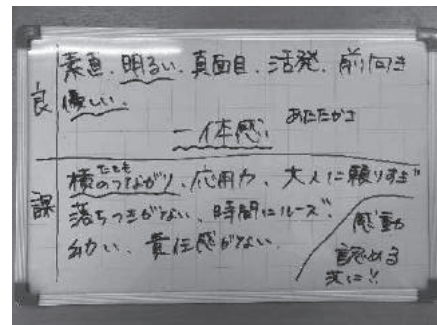 良
素直、明るい、真面目、活発、前向き
優しい、
一体感、
あたたかさ
課
たても
横のつながり、応用力、大人に頼りすぎ
落ちつきがない、時間にルーズ、
幼い、責任感がない、
感動
認める
次に!!